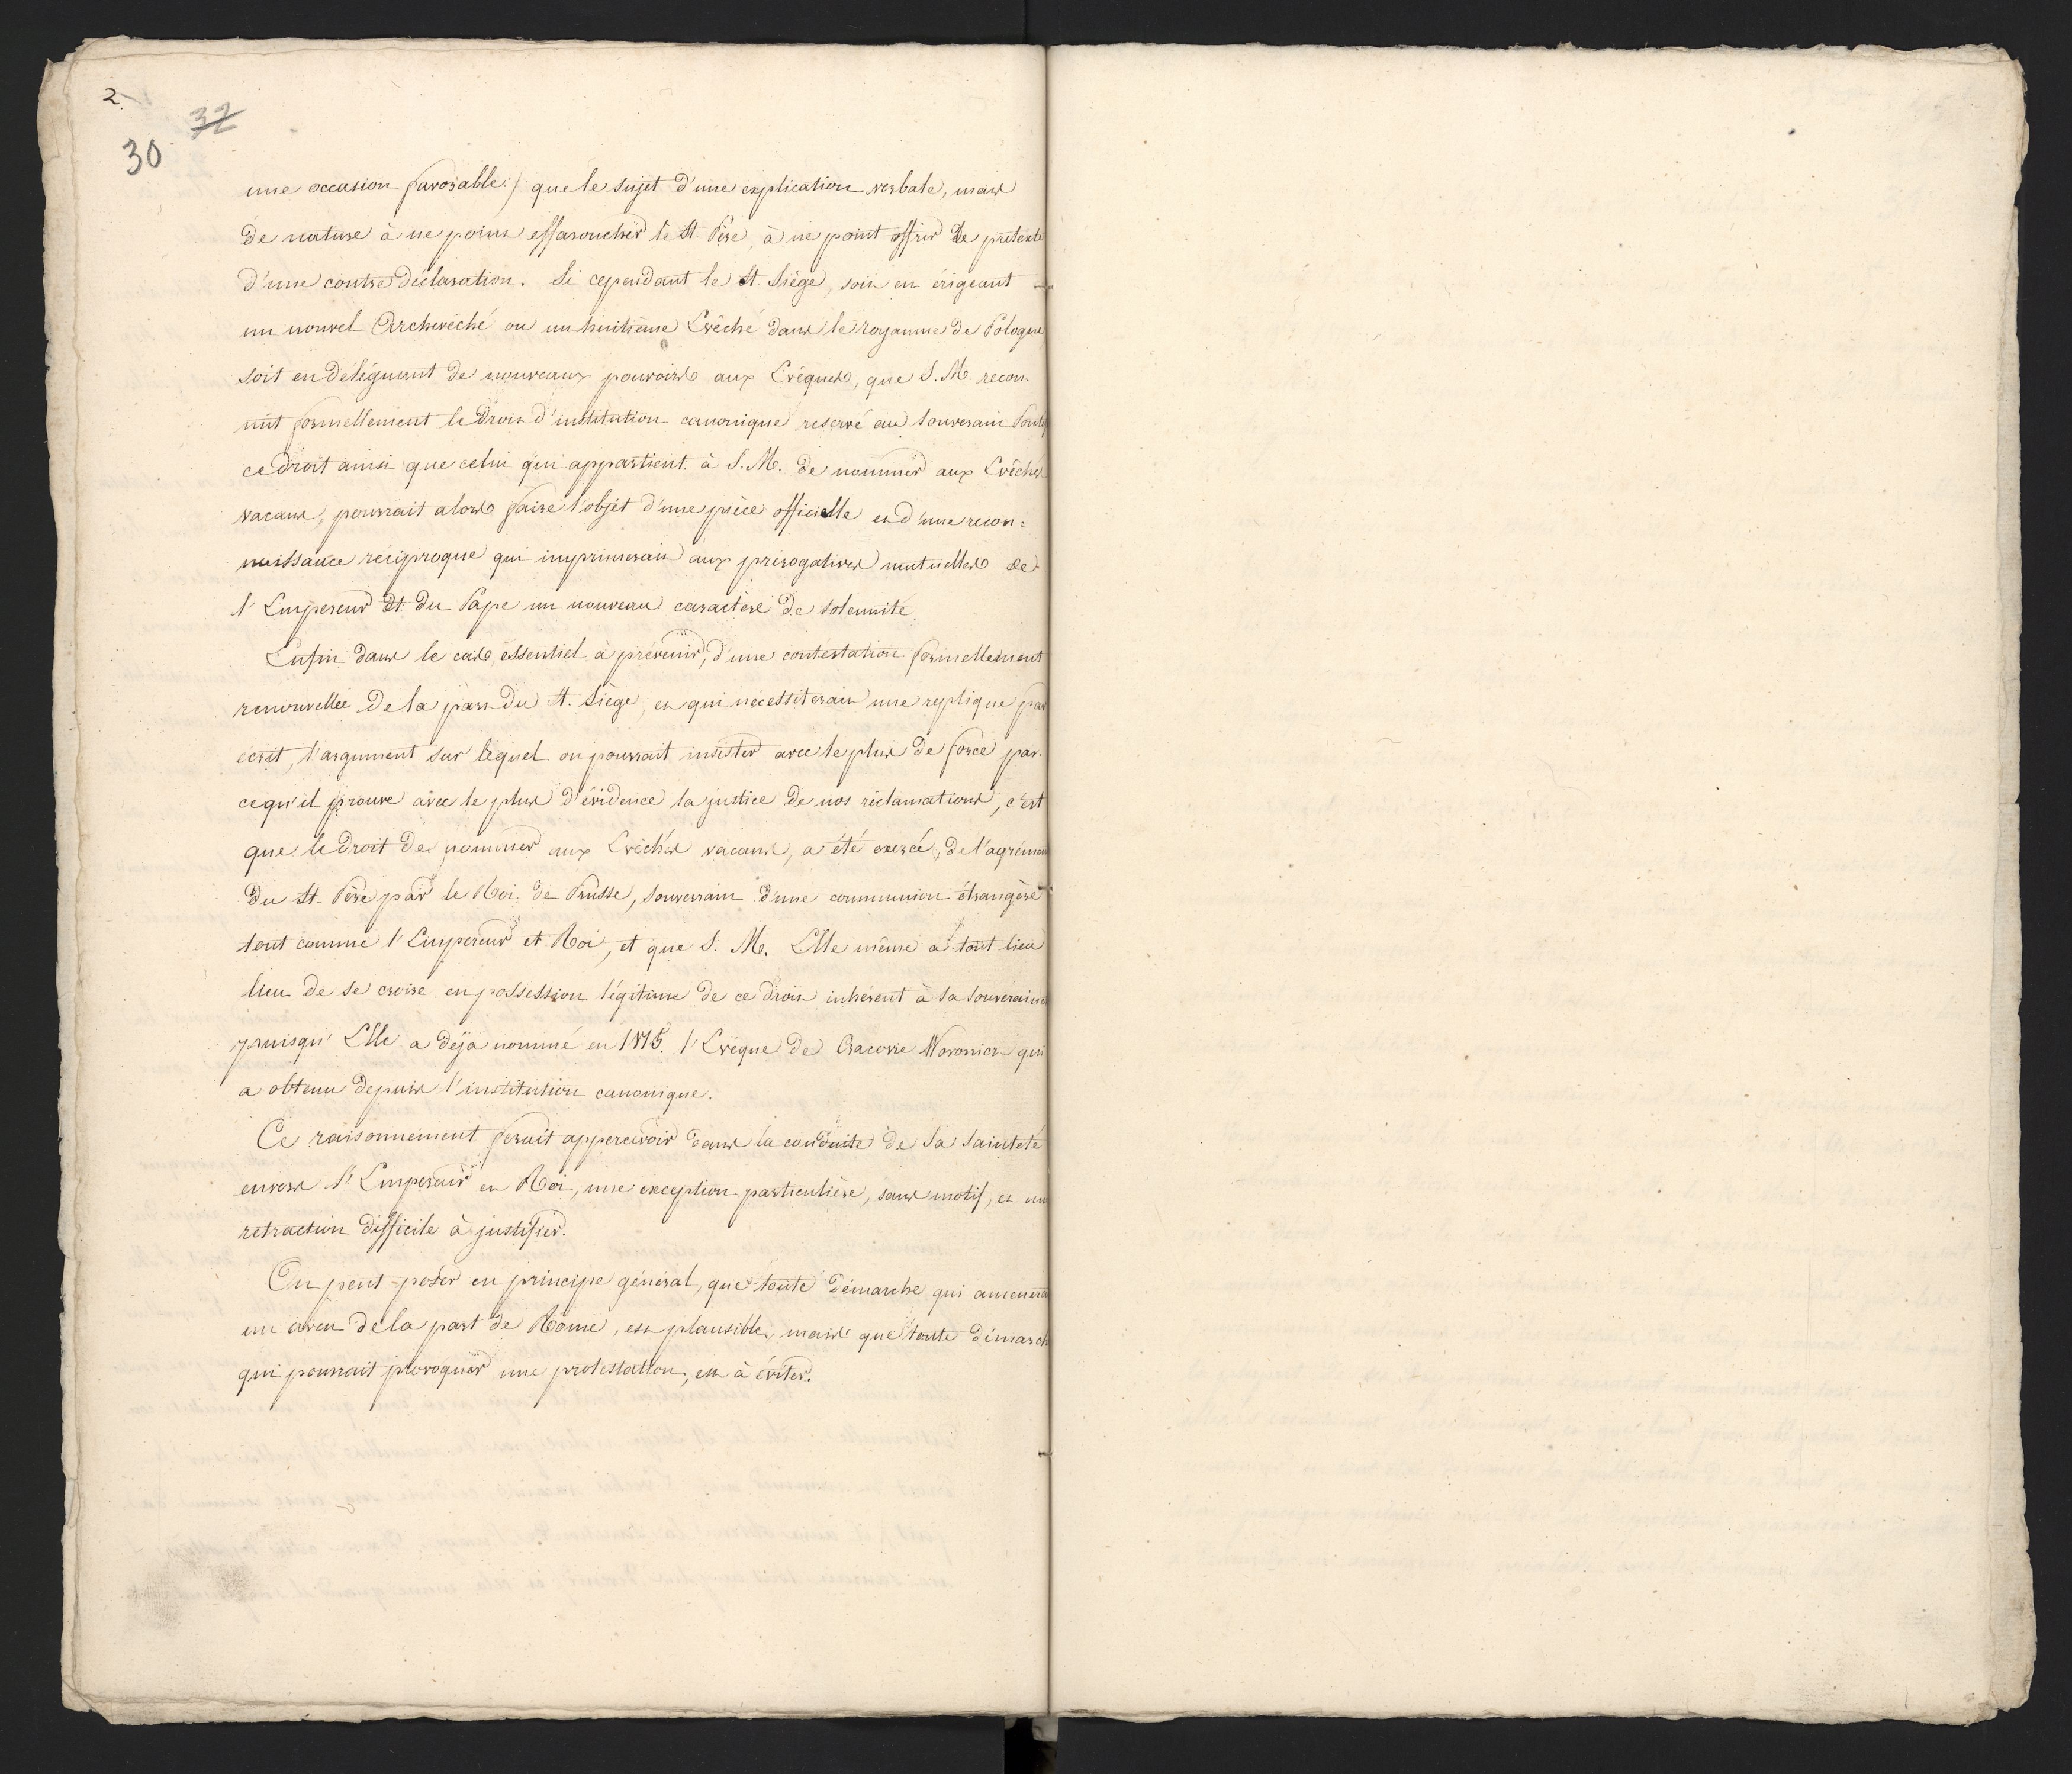 2.
32
30
une occasion favorable:/ que le sujet d'une explication verbale, mais
de nature à ne point effaroucher le St. Père, à ne point offrir de prétexte
d'une contre déclaration. Si cependant le St. Siège, soit en érigeant
un nouvel Archevêché ou un huitième Evêché dans le royaume de Pologne
soit en déléguant de nouveaux pouvoirs aux Evêques, que S. M. recon-
nut formellement le droit d'institution canonique reservé au Souverain
ce droit ainsi que celui qui appartient à S. M. de nommer aux Evêchés
vacans, pourrait alors faire l'objet d'une pièce officielle et d'une recon=
naissance réciproque qui imprimerait aux prérogatives mutuelles de
l'Empereur et du Pape un nouveau caractère de solennité.
Enfin dans le cas, essentiel à prévenir, d'une contestation formellement
renouvellée de la part du St. Siège, et qui nécessiterait une replique par
ecrit, l'argument sur lequel on pourrait insister avec le plus de force par-
cequ'il prouve avec le plus d'évidence la justice de nos réclamations, c'est
que le droit de nommer aux Evêchés vacans, a été exercé, de l'agrémen
du St. Père par le Roi de Prusse, souverain d'une communion étrangère
tout comme l'Empereur et Roi, et que S. M. Elle même a tout lieu
lieu de se croire en possession légitime de ce droit inhérent à sa souverain
puisqu'Elle a déja nommé en 1815. l'Evêque de Cracovie Woronicz qui
a obtenu depuis l'institution canonique.
Ce raisonnement ferait appercevoir dans la conduite de Sa Sainteté
envers l'Empereur et Roi, une exception particulière, sans motif, et un
retraction difficile à justifier.
On peut poser en principe général, que toute démarche qui amenera
un aveu de la part de Rome, est plausible, mais que toute démarch
qui pourrait provoquer une protestation, est à éviter.